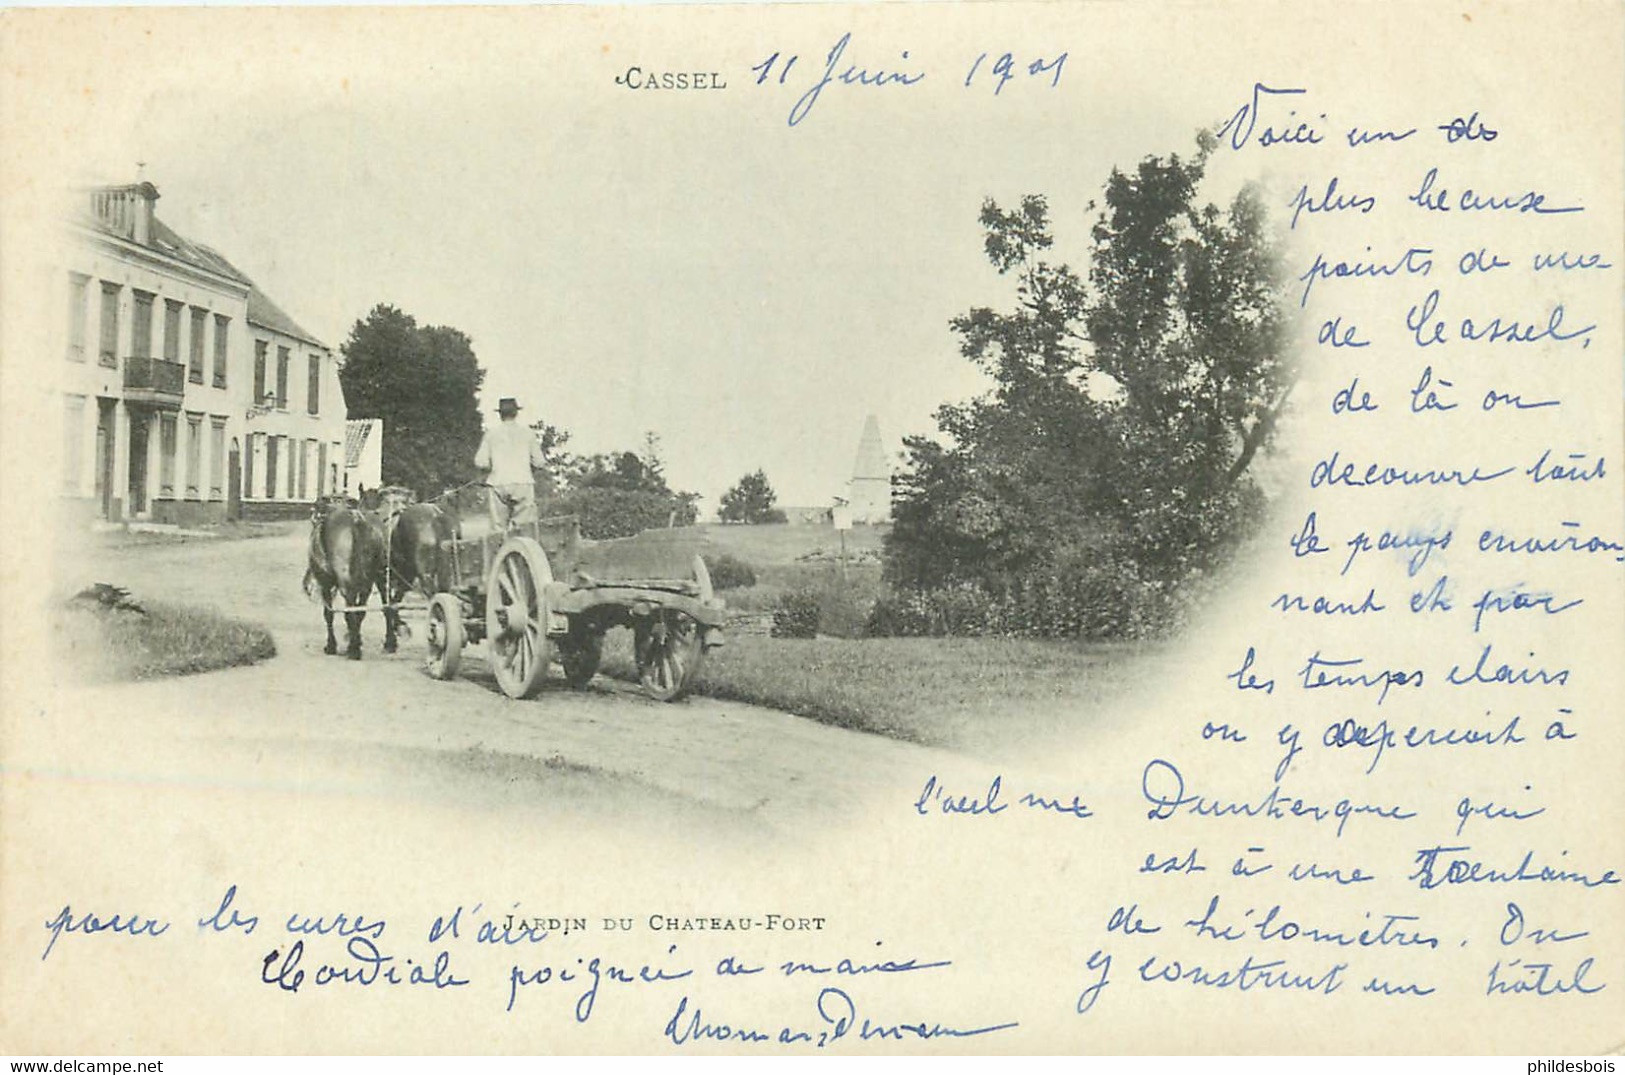 CASSEL 11 Juin 1901
Voici un des
plus beaux
points de vue
de Cassel,
de là on
decouvre tout
le pays environ-
nant et par
les temps clairs
on y aperçoit à
l'œil nu Dunkerque qui
est à une Trentaine
de kilomètres. On
y construit un hôtel
pour les cures d'air.
JARDIN DU CHATEAU-FORT
Cordiale poignée de main
Thomas
phildesbois